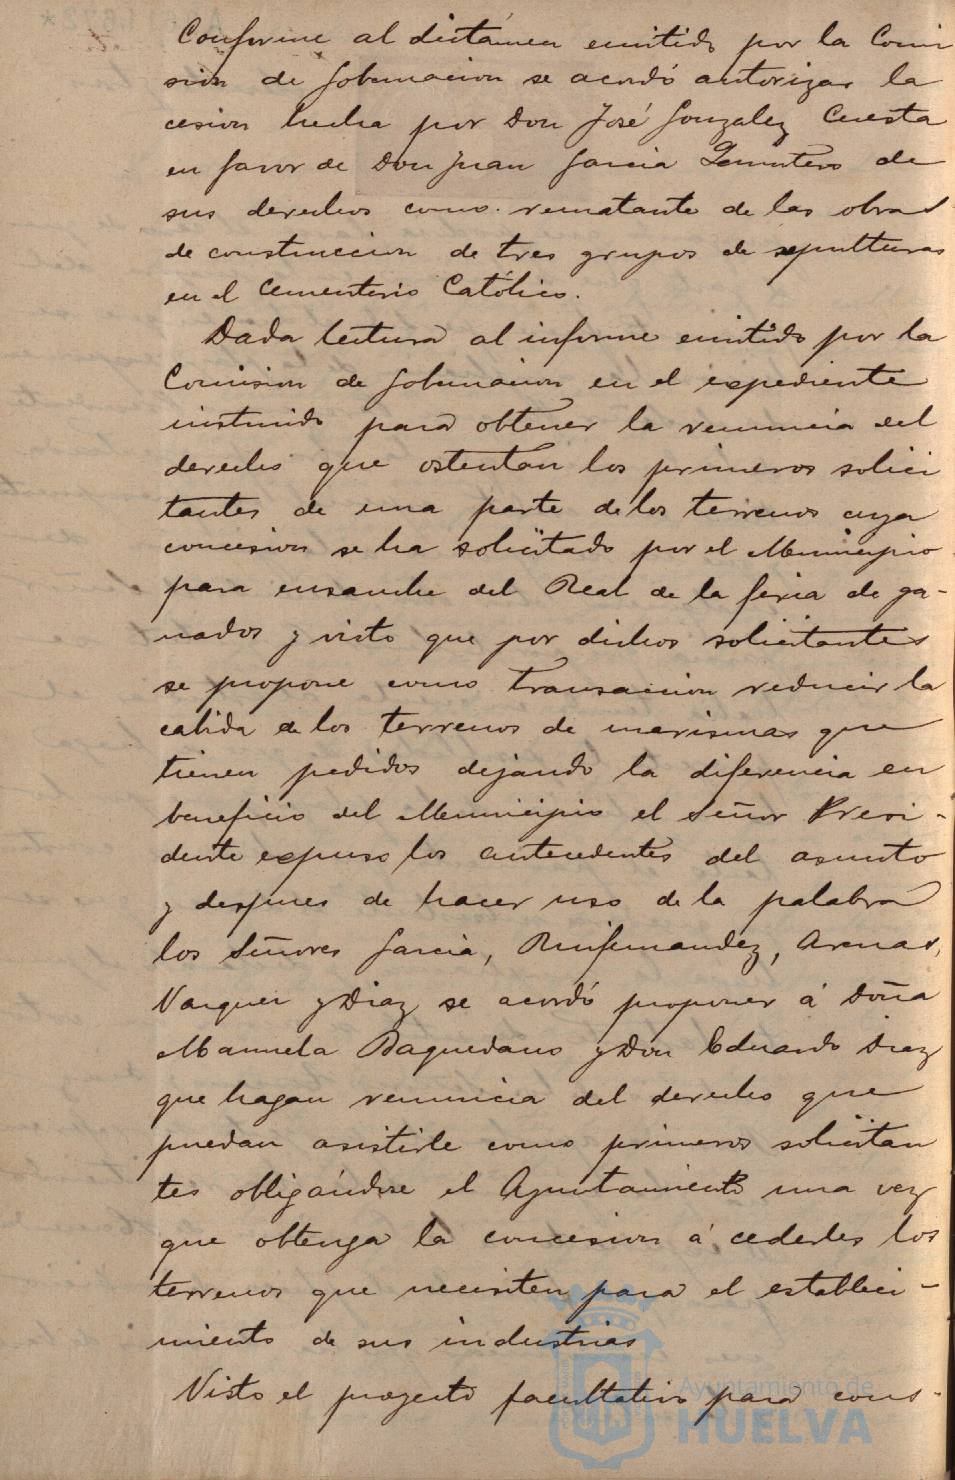 Conforme al dictámen emitido por la Comi
sion de Gobernacion se acordó autorizar la
cesion hecha por Don José Gonzalez Cuesta
en favor de Don Juan Garcia de
sus derechos como rematante de las obras
de construccion de tres grupos de sepulturas
en el Cementerio Católico.
Dada lectura al informe emitido por la
Comision de Gobernacion en el expediente
instruido para obtener la renuncia del
derecho que ostentan los primeros solici
tantes de una parte de los terrenos cuya
concesion se ha solicitado por el Municipio
para ensanche del Real de la feria de ga-
nados y visto que por dichos solicitantes
se propone como transaccion reducir la
cabida de los terrenos de marismas que
tienen pedidos dejando la diferencia en
beneficio del Municipio el Señor Presi-
dente expuso los antecedentes del asunto
y despues de hacer uso de la palabra
los Señores Garcia, Ruifernandez, Arenas,
Vazquez y Diaz se acordó proponer á Doña
Manuela Baquedano y Don Eduardo Diaz
que hagan renuncia del derecho que
puedan asistirle como primeros solicitan
tes obligándose el Ayuntamiento una vez
que obtenga la concesion á cederles los
terrenos que necesiten para el estableci-
miento de sus industrias
Visto el proyecto facultativo para cons-
Ayuntamiento de
HUELVA